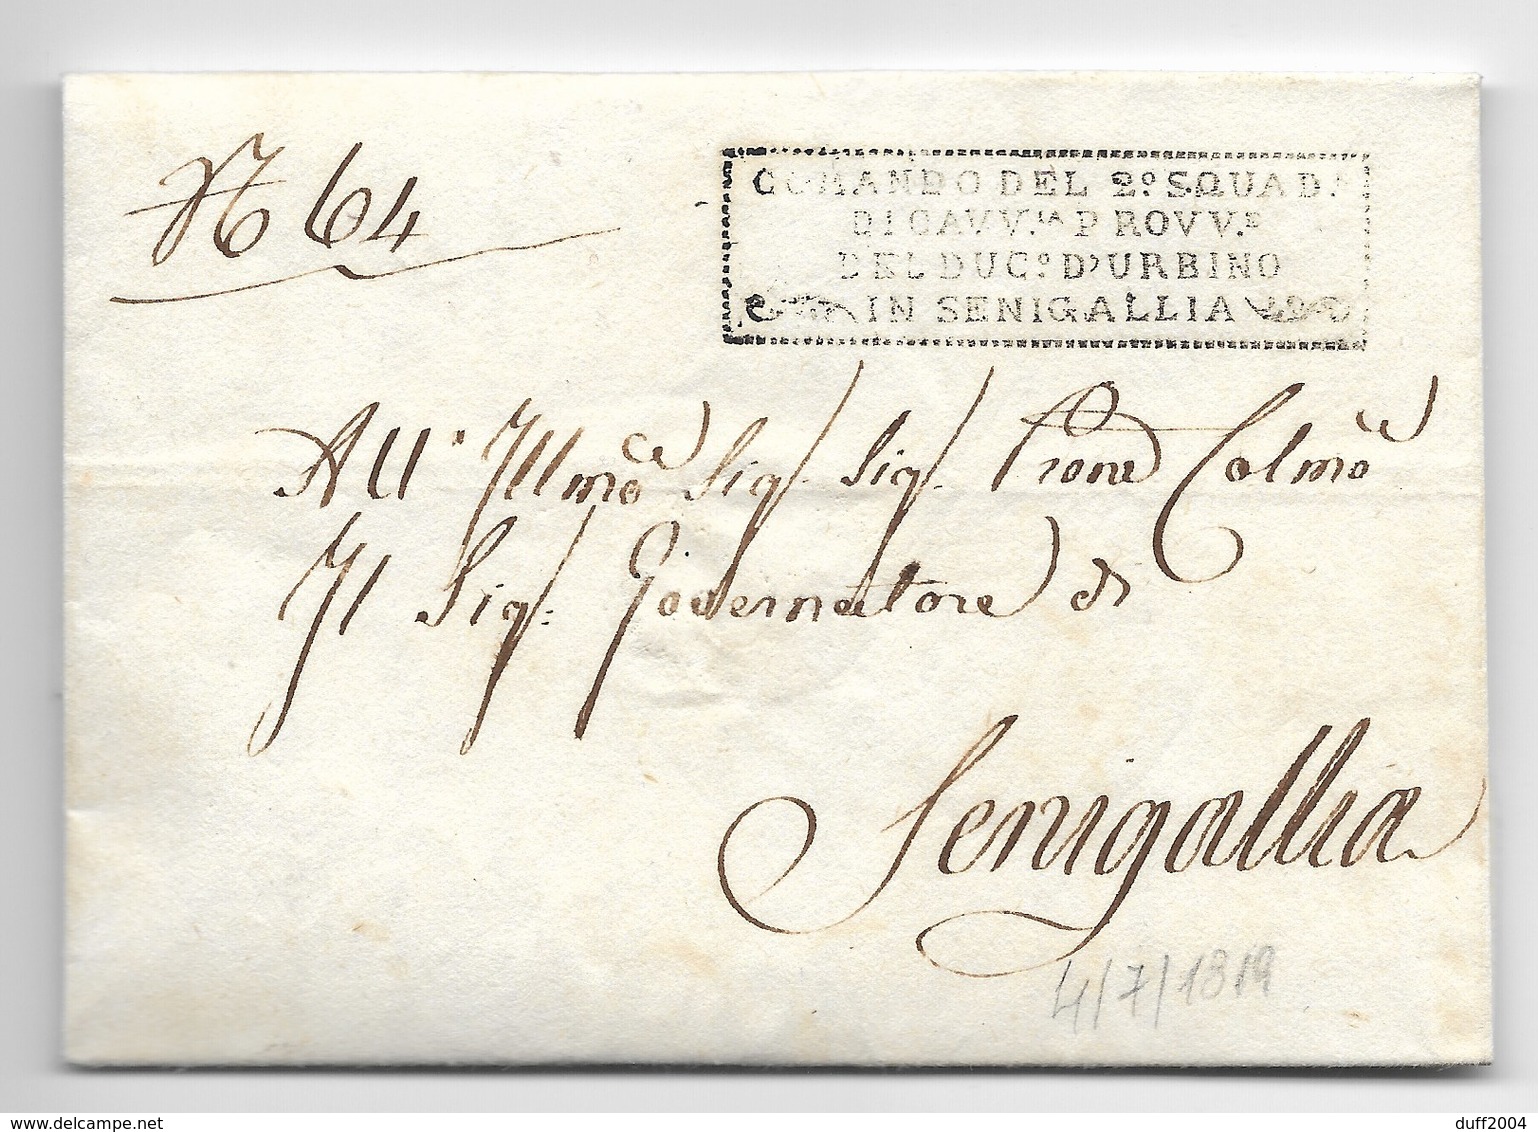 N 64
COMANDO DEL 2.º SQUAD.
DI CAVV.ᴵᴬ PROVV.ᴱ
DEL DUC.º D'URBINO
IN SENIGALLIA
All' Illmo Sig. Sig. Prone Colmo
Il Sig. Governatore di
Senigallia
4/7/1819
www.delcampe.net
duff2004